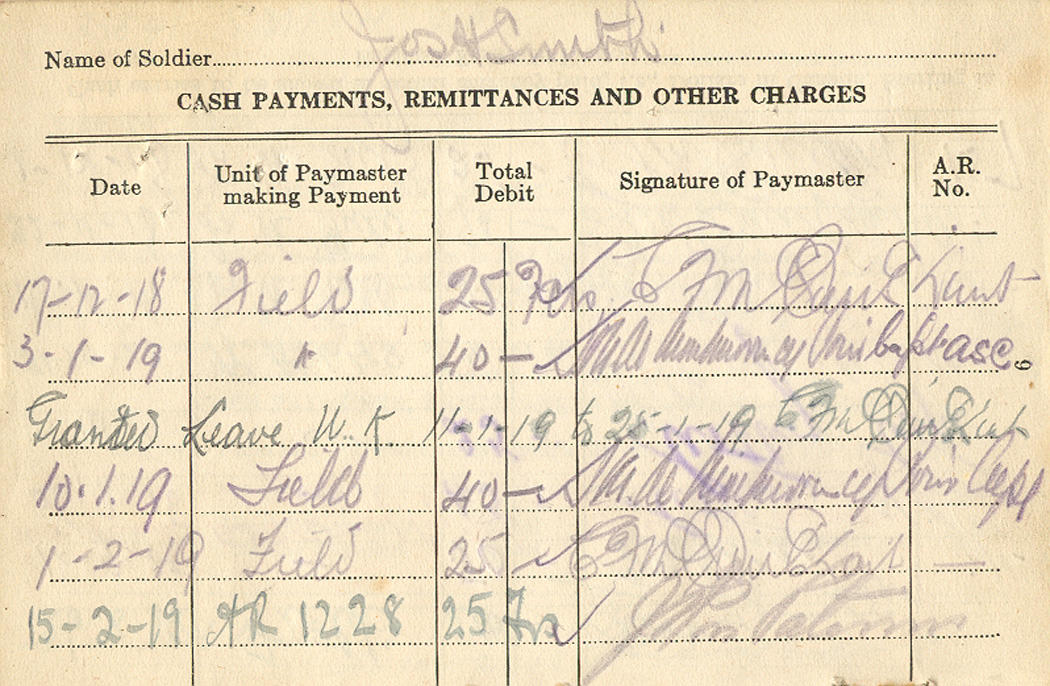 Name of Soldier Jos H Smith
CASH PAYMENTS, REMITTANCES AND OTHER CHARGES
Date Unit of Paymaster making Payment Total Debit Signature of Paymaster A.R. No.
17-12-18 Field 25 Frs.
3-1-19 " 40 — Capt asc
Granted Leave U.K. 11-1-19 to 25-1-19
10.1.19 Field 40 — Capt
1-2-19 Field 25 —
15-2-19 AR 1228 25 Frs
6